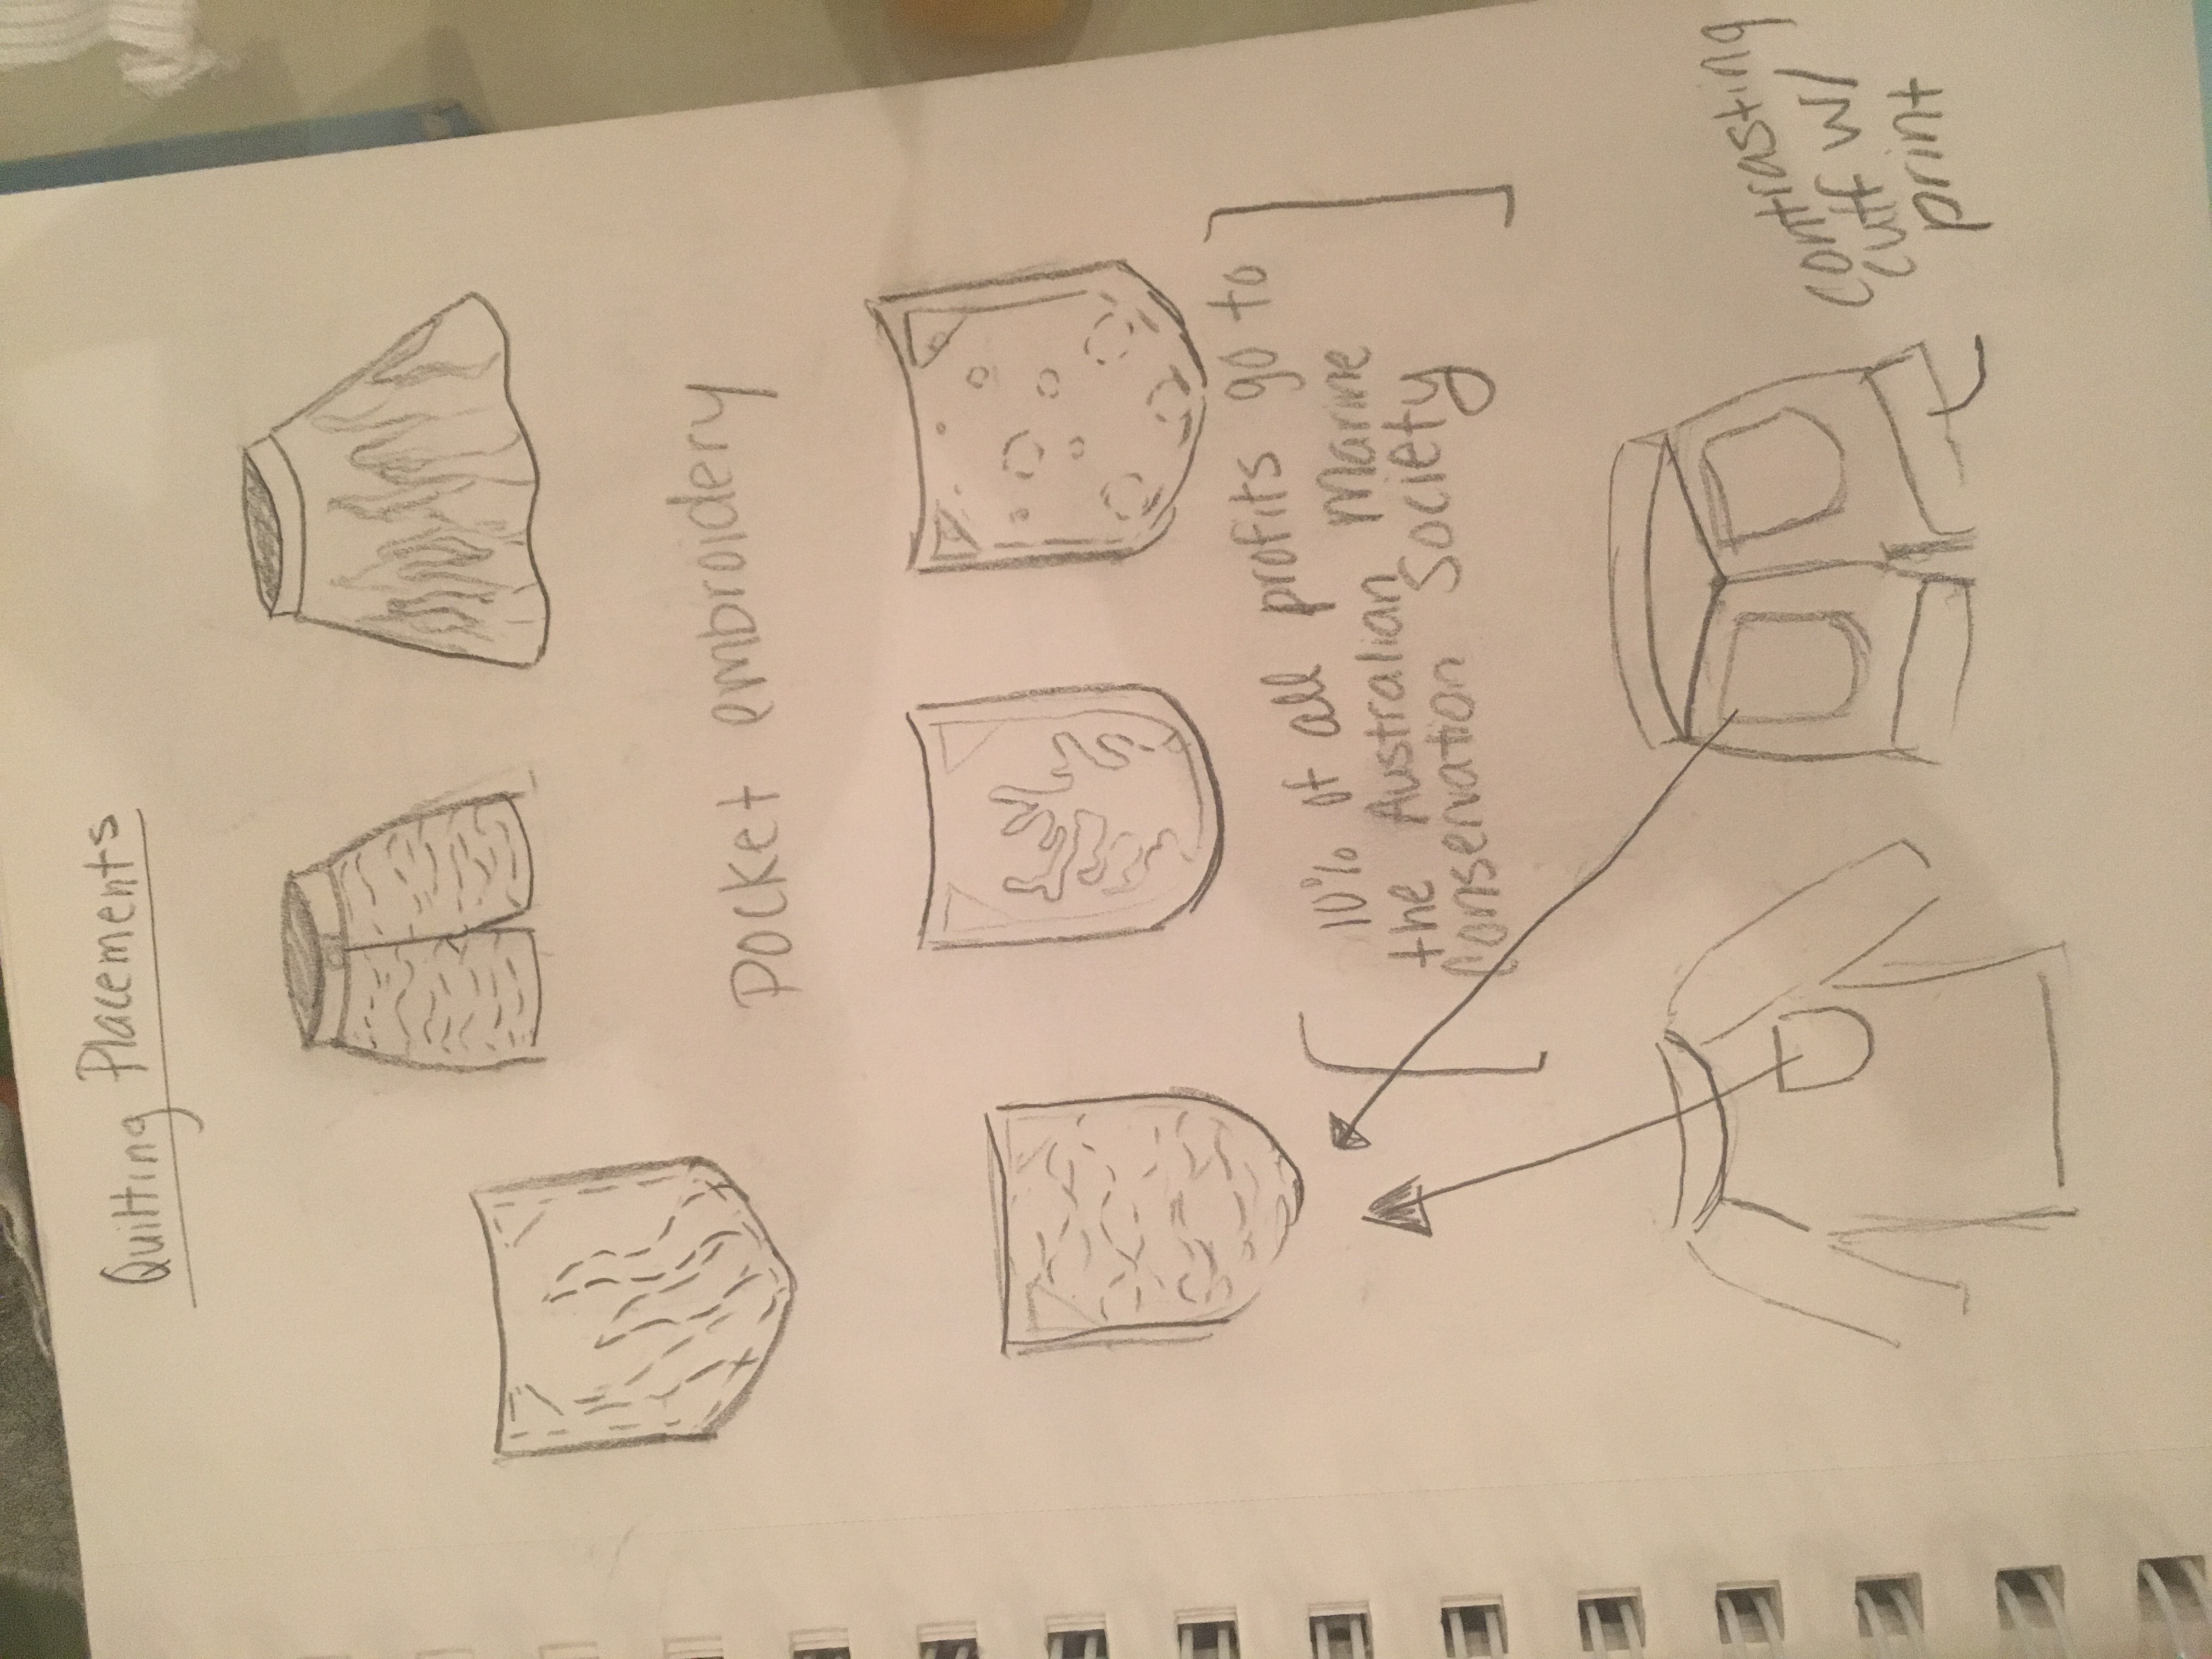 Quilting Placements
Pocket embroidery
10% of all profits go to
the Australian Marine
Conservation Society
contrasting
cuff w/
print